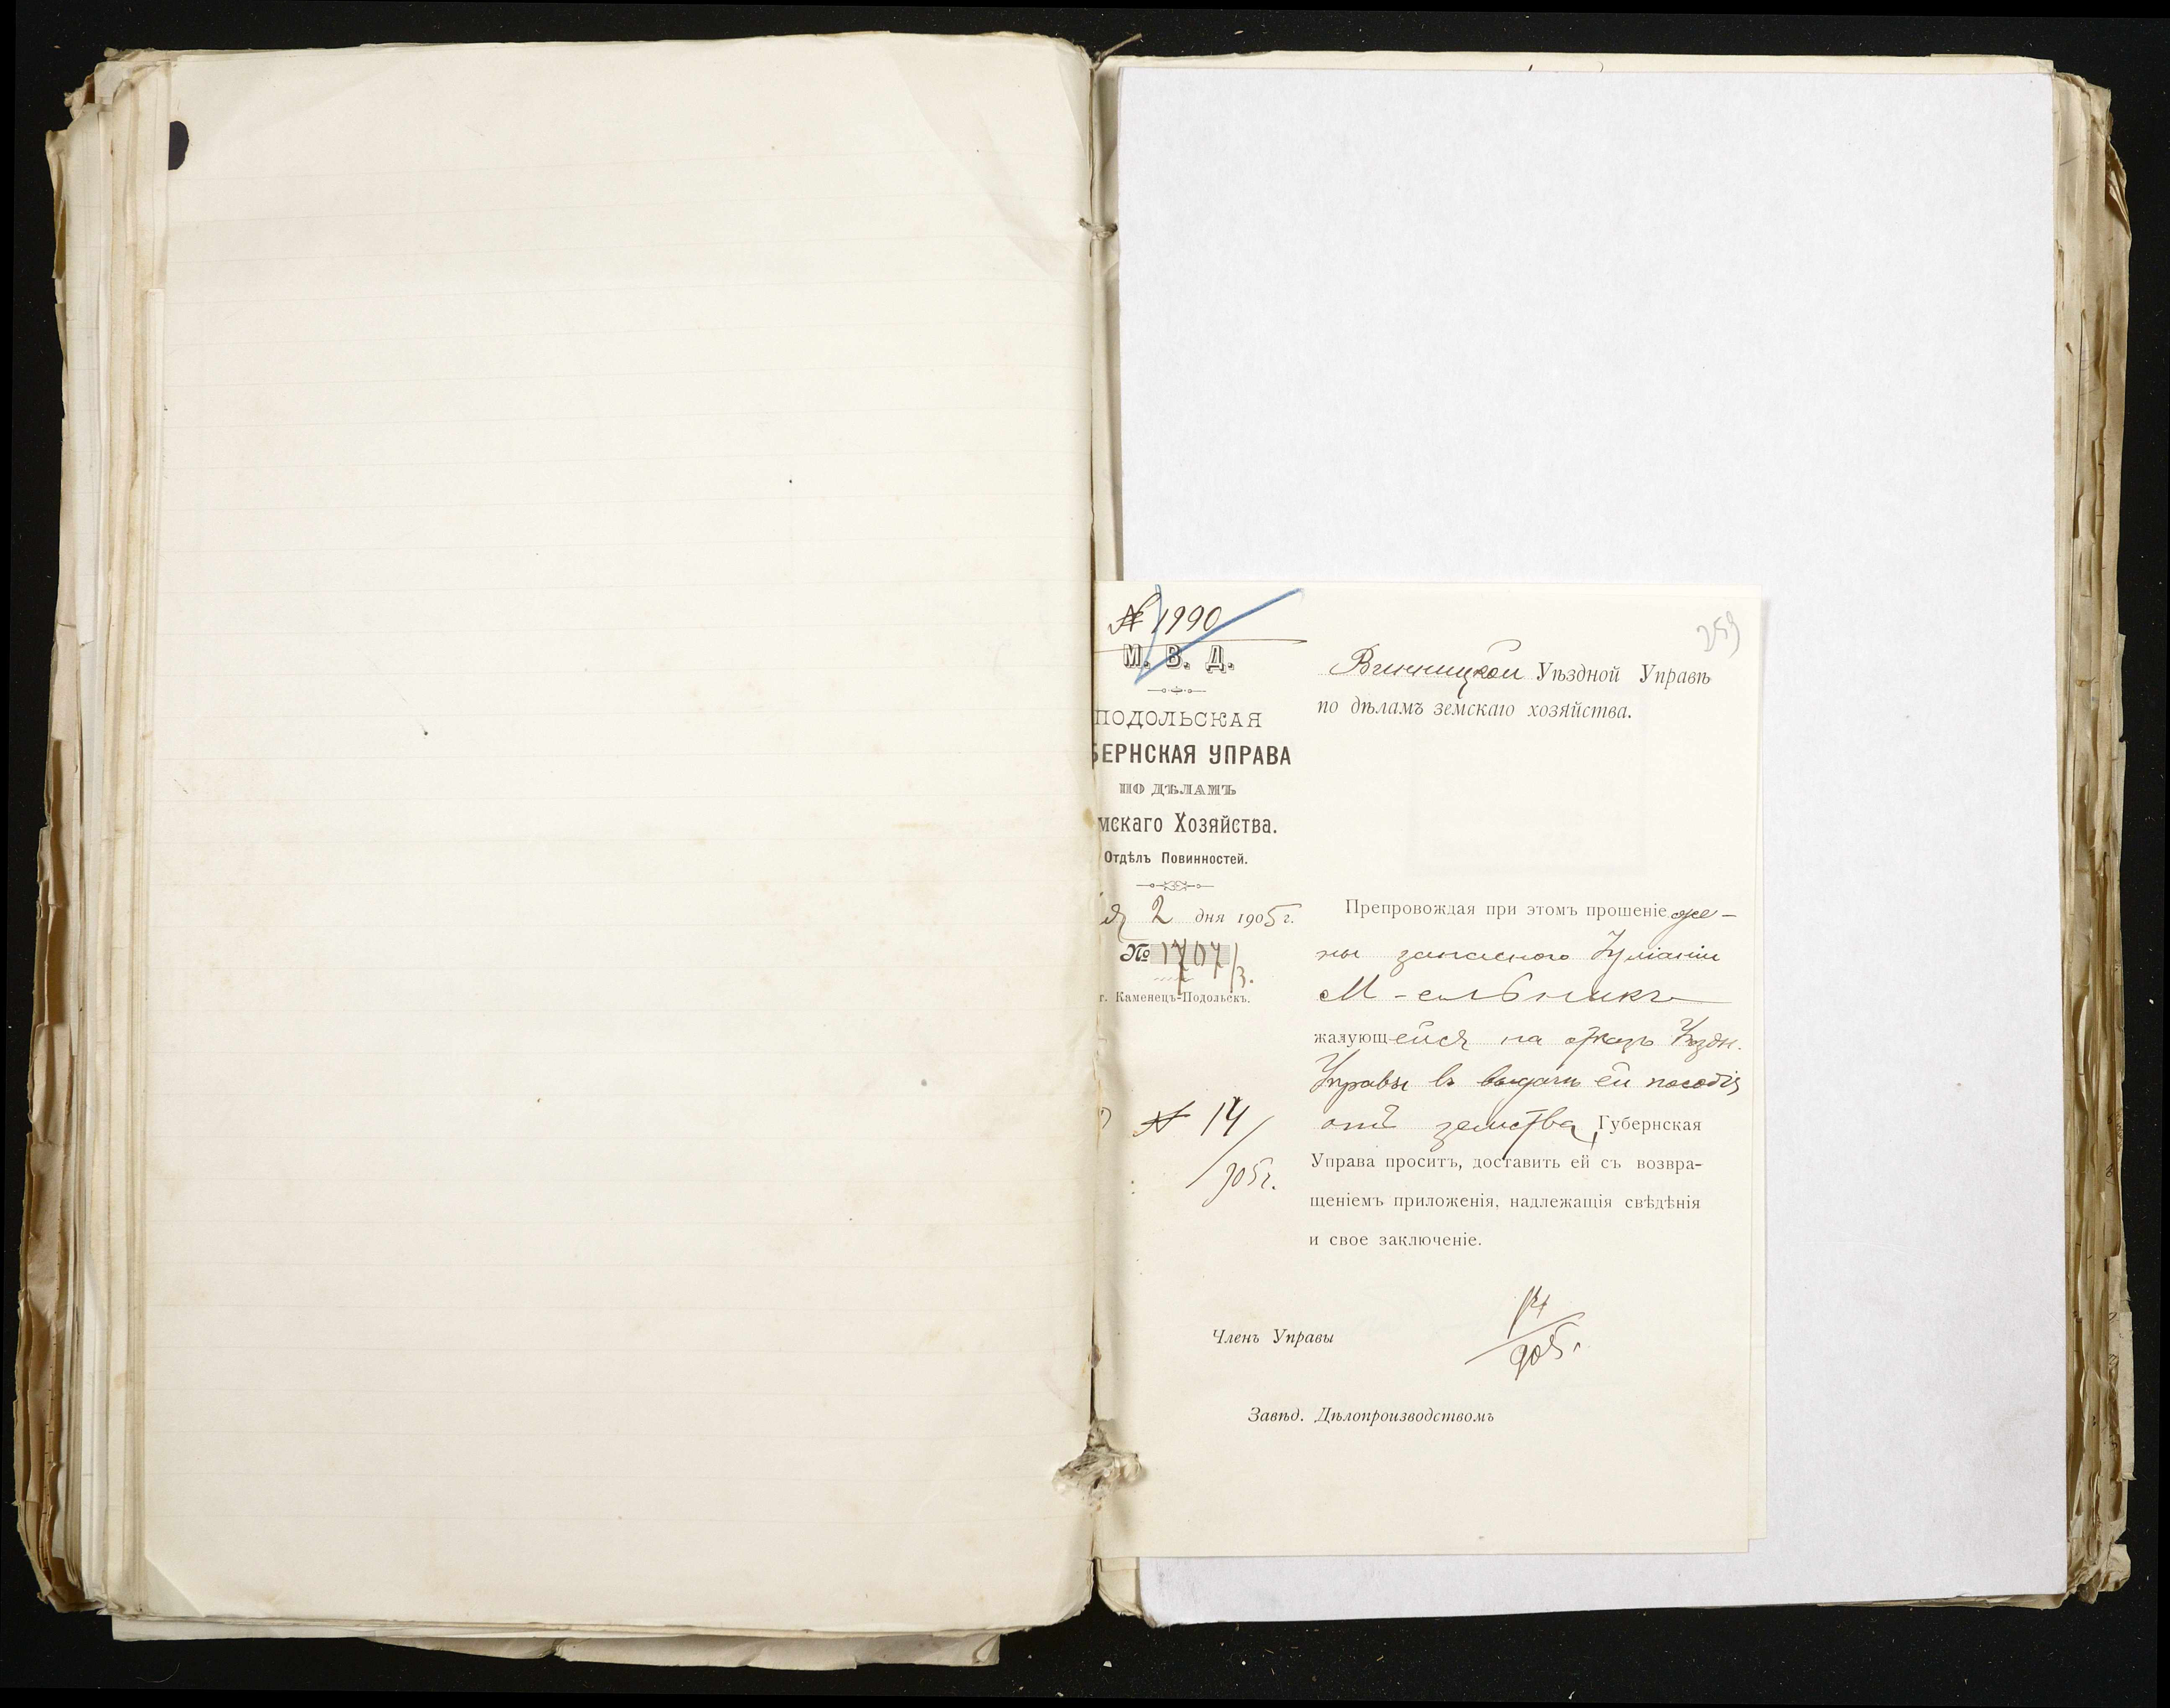 № 1990
М. В. Д.
ПОДОЛЬСКАЯ
БЕРНСКАЯ УПРАВА
ПО ДѢЛАМЪ
мскаго Хозяйства.
Отдѣлъ Повинностей.
2 дня 1905 г.
№ 1707/3.
г. Каменецъ-Подольскъ.
№ 14/905 г.
259
Винницкой Уѣздной Управѣ
по дѣламъ земскаго хозяйства.
Препровождая при этомъ прошеніе же-
ны запасного Іуліаніи
М-ельникъ
жалующейся на отказъ Уѣздн.
Управы въ выдачѣ ей пособія
отъ земства, Губернская
Управа проситъ, доставить ей съ возвра-
щеніемъ приложенія, надлежащія свѣдѣнія
и свое заключеніе.
14/905 г.
Членъ Управы
Завѣд. Дѣлопроизводствомъ